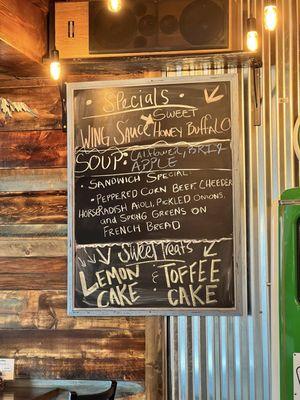 Specials
Wing Sauce Sweet
Honey Buffalo
Soup: Cauliflower, Brie,
Apple
Sandwich Special:
Peppered Corn Beef, Cheddar
Horseradish Aioli, Pickled Onions,
and Spring Greens on
French Bread
Sweet Treats
Lemon & Toffee
Cake Cake